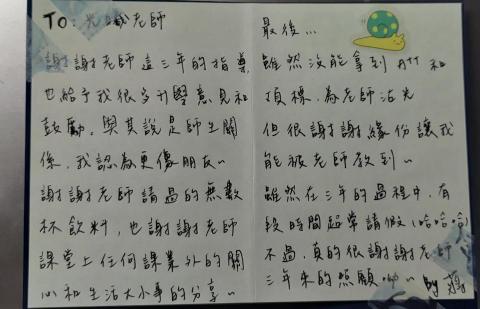 TO: 光曦老師
謝謝老師這三年的指導,
也給予我很多升學意見和
鼓勵。與其說是師生關
係,我認為更像朋友~
謝謝老師請過的無數
杯飲料,也謝謝老師
課堂上任何課業外的關
心和生活大小事的分享~
最後...
雖然沒能拿到 A++ 和
頂標,為老師沾光
但很謝謝緣份讓我
能被老師教到~
雖然在三年的過程中,有
段時間超常請假(哈哈哈)
不過,真的很謝謝老師
三年來的照顧呦~ By